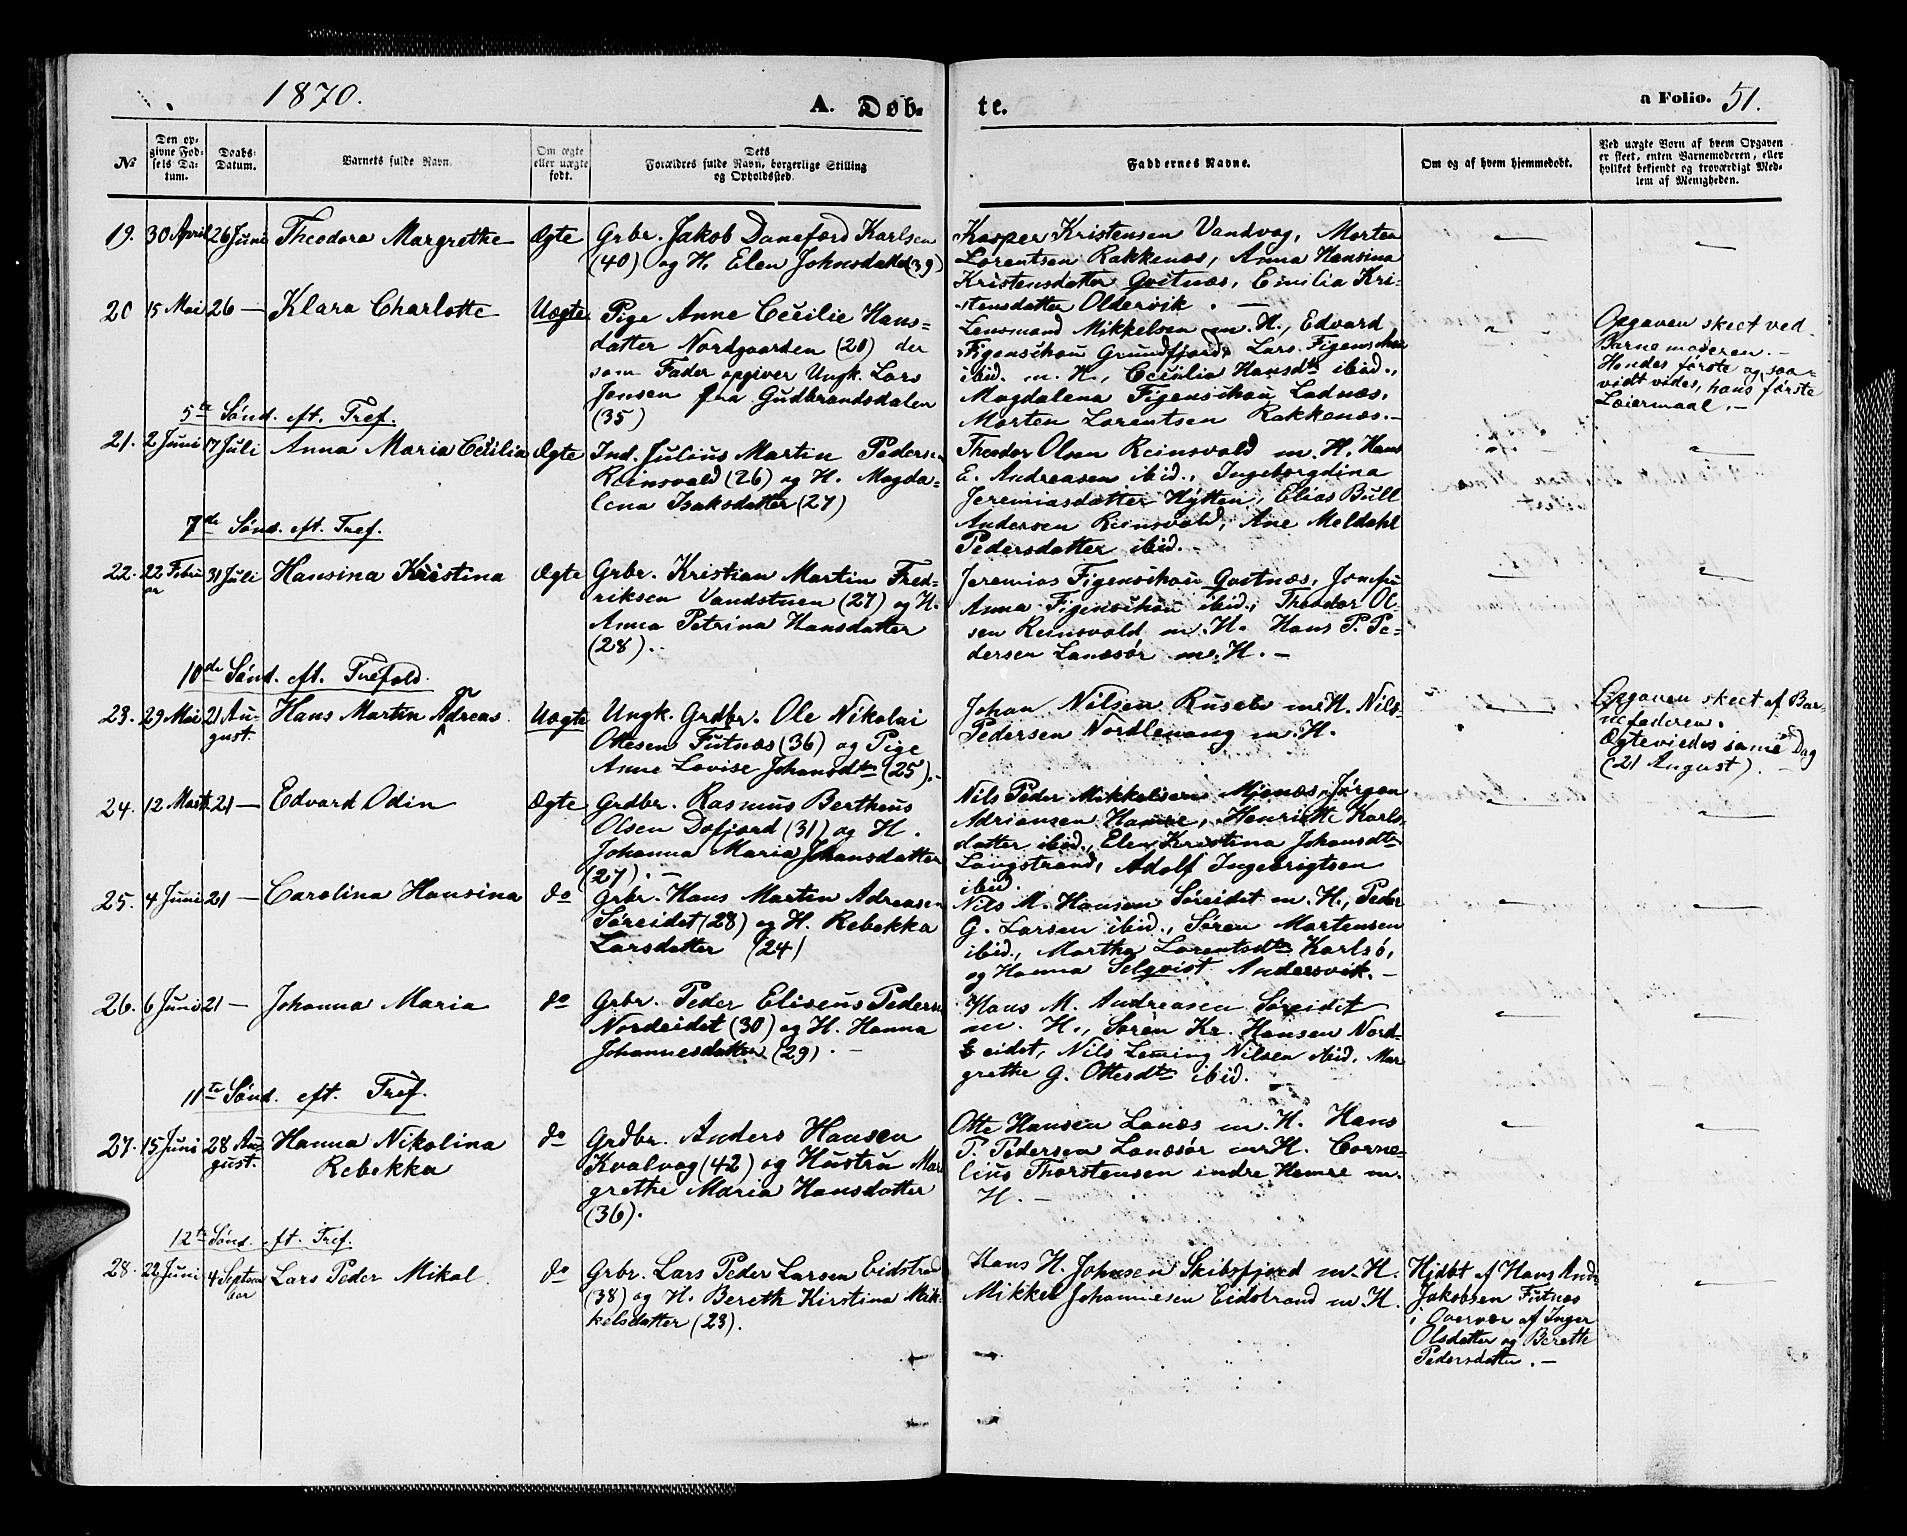 1870.
A. Døb-
te.
a Folio. 51.
No
Den op-
givne Fød-
sels Da-
tum.
Daabs-
Datum.
Barnets fulde Navn.
Om ægte
eller uægte
født.
Dets
Forældres fulde Navn, borgerlige Stilling
og Opholdssted.
Faddernes Navne.
Om og af hvem hjemmedøbt.
Ved uægte Børn af hvem Opgaven
er skeet, enten Barnemoderen, eller
hvilket bekjendt og troværdigt Med-
lem af Menigheden.
19. 30 April 26 Juni Theodora Margrethe Ægte
Grbr. Jakob Danefærd Karlsen
(40) og H. Elen Johnsdatter (39)
Kasper Kristensen Vandvag, Morten
Lorentsen Rakkenæs, Anna Hansina
Kristensdatter Qvitnæs, Emilia Kri-
stensdatter Oldervik. —
20 15 Mai 26 — Klara Charlotte Uægte
Pige Anne Cecilie Hans=
datter Nordgaarden (20) der
som Fader opgiver Ungk. Lars
Jensen fra Gudbrandsdalen
(35)
Lensmand Mikkelsen m. H., Edvard
Figenschau Grundfjord, Lars Figenschau
ibid. m. H., Cecilia Hansdtr ibid.,
Magdalena Figenschau Ladnæs,
Morten Lorentsen Rakkenæs. —
Opgaven skeet ved
Barnemoderen. —
Hendes første og saa-
vidt vides, hans første
Leiermaal. —
5te Sønd. eft. Tref.
21. 2 Juni 17 Juli Anna Maria Cecilia Ægte
Ind. Julius Martin Pedersen
Reinsvold (26) og H. Magda-
lena Isaksdatter (27)
Theodor Olsen Reinsvold m. H. Hans
E. Andreasen ibid., Ingeborgdina
Jeremiasdatter Hytten, Elias Bull
Andersen Reinsvold, Ane Meldahl
Pedersdatter ibid. —
7de Sønd. eft. Tref.
22. 22 Febru
ar 31 Juli Hansina Kristina Ægte
Grbr. Kristian Martin Fred-
riksen Vandstuen (27) og H.
Anna Petrina Hansdatter
(28). —
Jeremias Figenschau Qvitnæs, Josefu
Anna Figenschau ibid., Theodor Ol-
sen Reinsvold m. H. Hans P. Pe-
dersen Lanesør m. H. —
10de Sønd. eft. Trefold.
23. 29 Mai 21 Au-
gust. Hans Martin Adreas n Uægte
Ungk. Grdbr. Ole Nikolai
Ottesen Futnæs (36) og Pige
Anne Lovise Johansdtr (25). —
Johan Nilsen Ruselv m. H. Nils
Pedersen Nordlenang m. H.
Opgaven skeet af Bar-
nefaderen.
Ægteviedes samme Dag
(21 August). —
24. 12 Marts 21 — Edvard Odin Ægte
Grdbr. Rasmus Bertheus
Olsen Dafjord (31) og H.
Johanna Maria Johansdatter
(27). —
Nils Peder Mikkelsen Mjønæs, Jørgen
Adriansen Hamre, Henriette Karls-
datter ibid., Elen Kristina Johansdtr
Langstrand, Adolf Ingebrigtsen
ibid.
25. 4 Juni 21 — Carolina Hansina do
Grbr. Hans Martin Adreasen
Søreidet (28) og H. Rebekka
Larsdatter (24)
Nils M. Hansen Søreidet m. H., Peder
G. Larsen ibid., Søren Martensen
ibid., Martha Lorentsdtr Karlsø,
og Hanna Selqvist Andersvik. —
26. 6 Juni 21 — Johanna Maria do
Grbr. Peder Eliseus Pedersen
Nordeidet (30) og H. Hanna
Johannesdatter (29). —
Hans M. Andreasen Søreidet
m. H., Søren Kr. Hansen Nord-
eidet, Nils Leming Nilsen ibid. Mar
grethe G. Ottesdtr ibid.
11te Sønd. eft. Tref.
27. 15 Juni 28 Au-
gust. Hanna Nikolina
Rebekka do
Grdbr. Anders Hansen
Kvalvag (42) og Hustru Mar
grethe Maria Hansdatter
(36).
Otte Hansen Lanæs m. H. Hans
P. Pedersen Lanæsør m. H. Corne-
lius Thorstensen indre Hamre m.
H. —
12te Sønd. eft. Tref.
28. 22 Juni 4 Septem
ber Lars Peder Mikal do
Grbr. Lars Peder Larsen Eidstrand
(38) og H. Bereth Kirstina Mik-
kelsdatter (23).
Hans H. Johnsen Skibsfjord m. H.
Mikkel Johannesen Eidstrand m. H.
Hjdbt af Hans And.
Jakobsen Futnæs
i Overvær af Inger
Olsdatter og Berethe
Pedersdatter. —